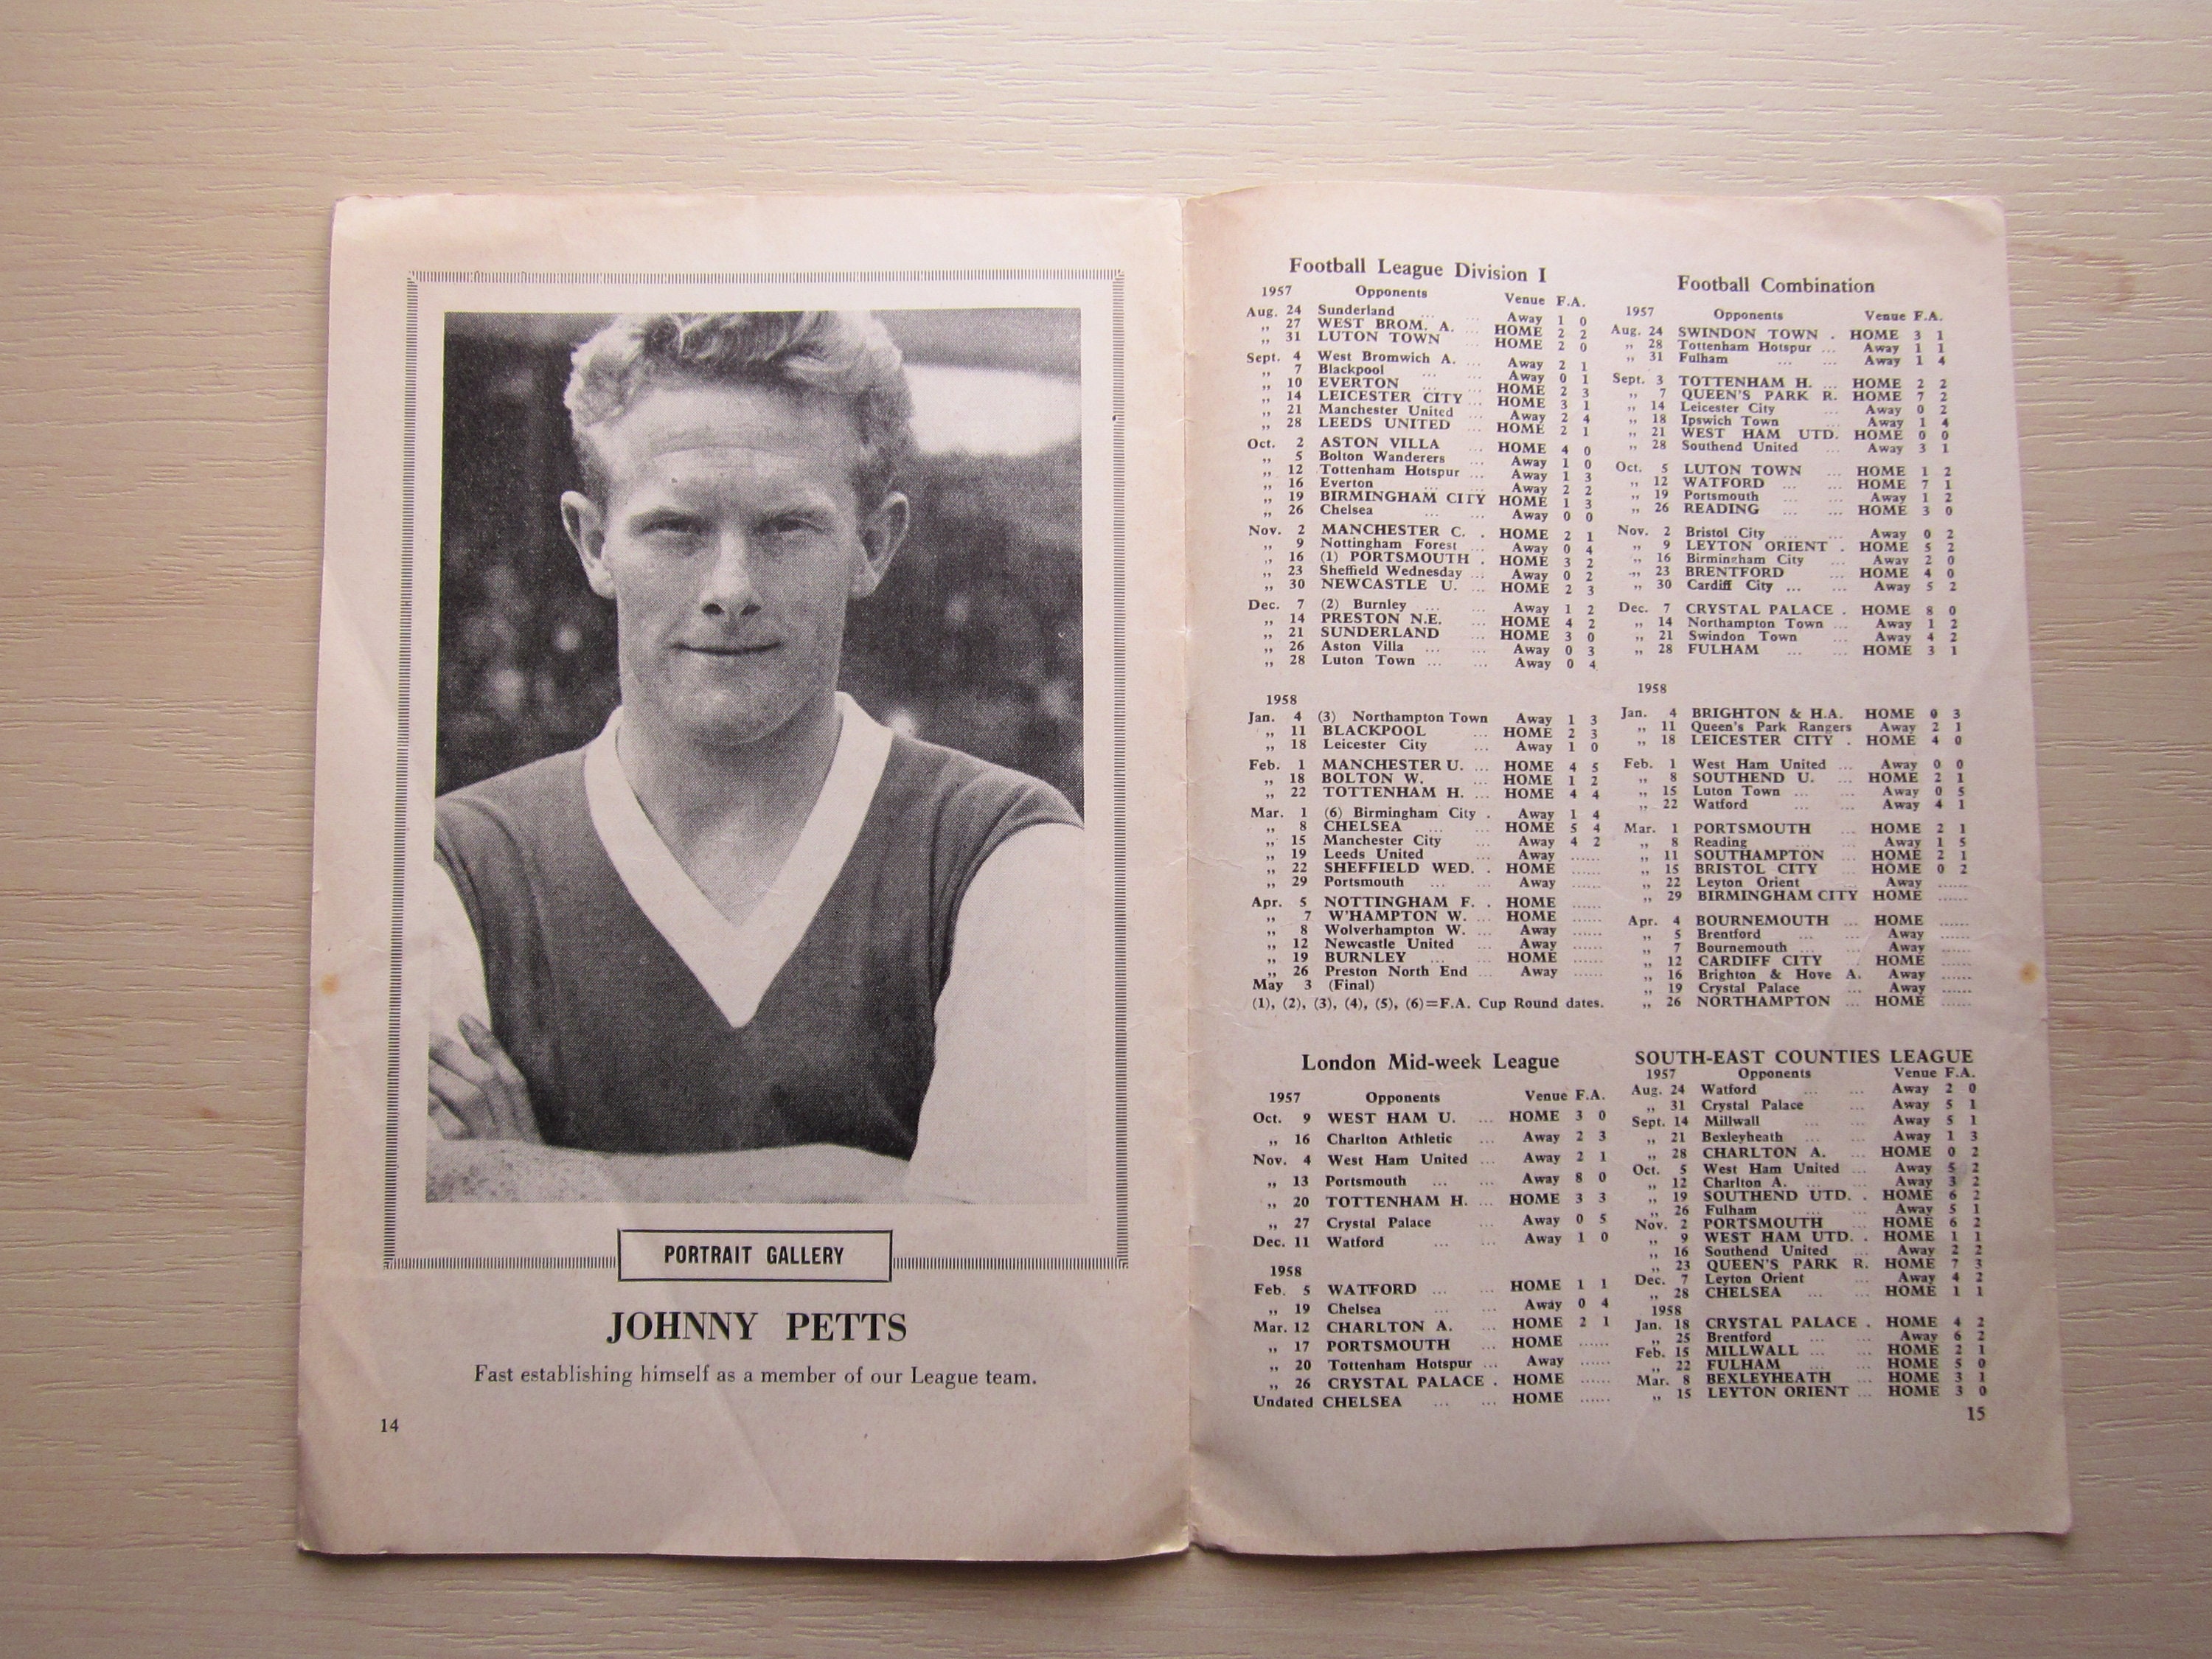 PORTRAIT GALLERY
JOHNNY PETTS
Fast establishing himself as a member of our League team.
14
Football League Division I
1957 Opponents Venue F.A.
Aug. 24 Sunderland ... ... Away 1 0
„ 27 WEST BROM. A. ... HOME 2 2
„ 31 LUTON TOWN ... HOME 2 0
Sept. 4 West Bromwich A. ... Away 2 1
„ 7 Blackpool ... ... Away 0 1
„ 10 EVERTON ... ... HOME 2 3
„ 14 LEICESTER CITY ... HOME 3 1
„ 21 Manchester United ... Away 2 4
„ 28 LEEDS UNITED ... HOME 2 1
Oct. 2 ASTON VILLA HOME 4 0
„ 5 Bolton Wanderers ... Away 1 0
„ 12 Tottenham Hotspur ... Away 1 3
„ 16 Everton ... ... Away 2 2
„ 19 BIRMINGHAM CITY HOME 1 3
„ 26 Chelsea ... ... Away 0 0
Nov. 2 MANCHESTER C. . HOME 2 1
„ 9 Nottingham Forest ... Away 0 4
„ 16 (1) PORTSMOUTH . HOME 3 2
„ 23 Sheffield Wednesday ... Away 0 2
„ 30 NEWCASTLE U. ... HOME 2 3
Dec. 7 (2) Burnley ... ... Away 1 2
„ 14 PRESTON N.E. ... HOME 4 2
„ 21 SUNDERLAND ... HOME 3 0
„ 26 Aston Villa ... ... Away 0 3
„ 28 Luton Town ... ... Away 0 4
1958
Jan. 4 (3) Northampton Town Away 1 3
„ 11 BLACKPOOL ... HOME 2 3
„ 18 Leicester City ... Away 1 0
Feb. 1 MANCHESTER U. ... HOME 4 5
„ 18 BOLTON W. ... HOME 1 2
„ 22 TOTTENHAM H. ... HOME 4 4
Mar. 1 (6) Birmingham City . Away 1 4
„ 8 CHELSEA ... ... HOME 5 4
„ 15 Manchester City ... Away 4 2
„ 19 Leeds United ... Away ......
„ 22 SHEFFIELD WED. . HOME ......
„ 29 Portsmouth ... ... Away ......
Apr. 5 NOTTINGHAM F. . HOME ......
„ 7 W'HAMPTON W. ... HOME ......
„ 8 Wolverhampton W. ... Away ......
„ 12 Newcastle United ... Away ......
„ 19 BURNLEY ... ... HOME ......
„ 26 Preston North End ... Away ......
May 3 (Final)
(1), (2), (3), (4), (5), (6)=F.A. Cup Round dates.
Football Combination
1957 Opponents Venue F.A.
Aug. 24 SWINDON TOWN . HOME 3 1
„ 28 Tottenham Hotspur ... Away 1 1
„ 31 Fulham ... ... Away 1 4
Sept. 3 TOTTENHAM H. ... HOME 2 2
„ 7 QUEEN'S PARK R. HOME 7 2
„ 14 Leicester City ... Away 0 2
„ 18 Ipswich Town ... Away 1 4
„ 21 WEST HAM UTD. HOME 0 0
„ 28 Southend United ... Away 3 1
Oct. 5 LUTON TOWN ... HOME 1 2
„ 12 WATFORD ... ... HOME 7 1
„ 19 Portsmouth ... ... Away 1 2
„ 26 READING ... ... HOME 3 0
Nov. 2 Bristol City ... ... Away 0 2
„ 9 LEYTON ORIENT . HOME 5 2
„ 16 Birmingham City ... Away 2 0
„ 23 BRENTFORD ... HOME 4 0
„ 30 Cardiff City ... ... Away 5 2
Dec. 7 CRYSTAL PALACE . HOME 8 0
„ 14 Northampton Town ... Away 1 2
„ 21 Swindon Town ... Away 4 2
„ 28 FULHAM ... ... HOME 3 1
1958
Jan. 4 BRIGHTON & H.A. HOME 0 3
„ 11 Queen's Park Rangers Away 2 1
„ 18 LEICESTER CITY . HOME 4 0
Feb. 1 West Ham United ... Away 0 0
„ 8 SOUTHEND U. ... HOME 2 1
„ 15 Luton Town ... ... Away 0 5
„ 22 Watford ... ... Away 4 1
Mar. 1 PORTSMOUTH ... HOME 2 1
„ 8 Reading ... ... Away 1 5
„ 11 SOUTHAMPTON ... HOME 2 1
„ 15 BRISTOL CITY ... HOME 0 2
„ 22 Leyton Orient ... Away ......
„ 29 BIRMINGHAM CITY HOME ......
Apr. 4 BOURNEMOUTH ... HOME ......
„ 5 Brentford ... ... Away ......
„ 7 Bournemouth ... ... Away ......
„ 12 CARDIFF CITY ... HOME ......
„ 16 Brighton & Hove A. Away ......
„ 19 Crystal Palace ... Away ......
„ 26 NORTHAMPTON ... HOME ......
London Mid-week League
1957 Opponents Venue F.A.
Oct. 9 WEST HAM U. ... HOME 3 0
„ 16 Charlton Athletic ... Away 2 3
Nov. 4 West Ham United ... Away 2 1
„ 13 Portsmouth ... ... Away 8 0
„ 20 TOTTENHAM H. ... HOME 3 3
„ 27 Crystal Palace ... Away 0 5
Dec. 11 Watford ... ... Away 1 0
1958
Feb. 5 WATFORD ... ... HOME 1 1
„ 19 Chelsea ... ... Away 0 4
Mar. 12 CHARLTON A. ... HOME 2 1
„ 17 PORTSMOUTH ... HOME ......
„ 20 Tottenham Hotspur ... Away ......
„ 26 CRYSTAL PALACE . HOME ......
Undated CHELSEA ... ... HOME ......
SOUTH-EAST COUNTIES LEAGUE
1957 Opponents Venue F.A.
Aug. 24 Watford ... ... Away 2 0
„ 31 Crystal Palace ... Away 5 1
Sept. 14 Millwall ... ... Away 5 1
„ 21 Bexleyheath ... ... Away 1 3
„ 28 CHARLTON A. ... HOME 0 2
Oct. 5 West Ham United ... Away 5 2
„ 12 Charlton A. ... ... Away 3 2
„ 19 SOUTHEND UTD. . HOME 6 2
„ 26 Fulham ... ... Away 5 1
Nov. 2 PORTSMOUTH ... HOME 6 2
„ 9 WEST HAM UTD. . HOME 1 1
„ 16 Southend United ... Away 2 2
„ 23 QUEEN'S PARK R. HOME 7 3
Dec. 7 Leyton Orient ... Away 4 2
„ 28 CHELSEA ... ... HOME 1 1
1958
Jan. 18 CRYSTAL PALACE . HOME 4 2
„ 25 Brentford ... ... Away 6 2
Feb. 15 MILLWALL ... ... HOME 2 1
„ 22 FULHAM ... ... HOME 5 0
Mar. 8 BEXLEYHEATH ... HOME 3 1
„ 15 LEYTON ORIENT ... HOME 3 0
15